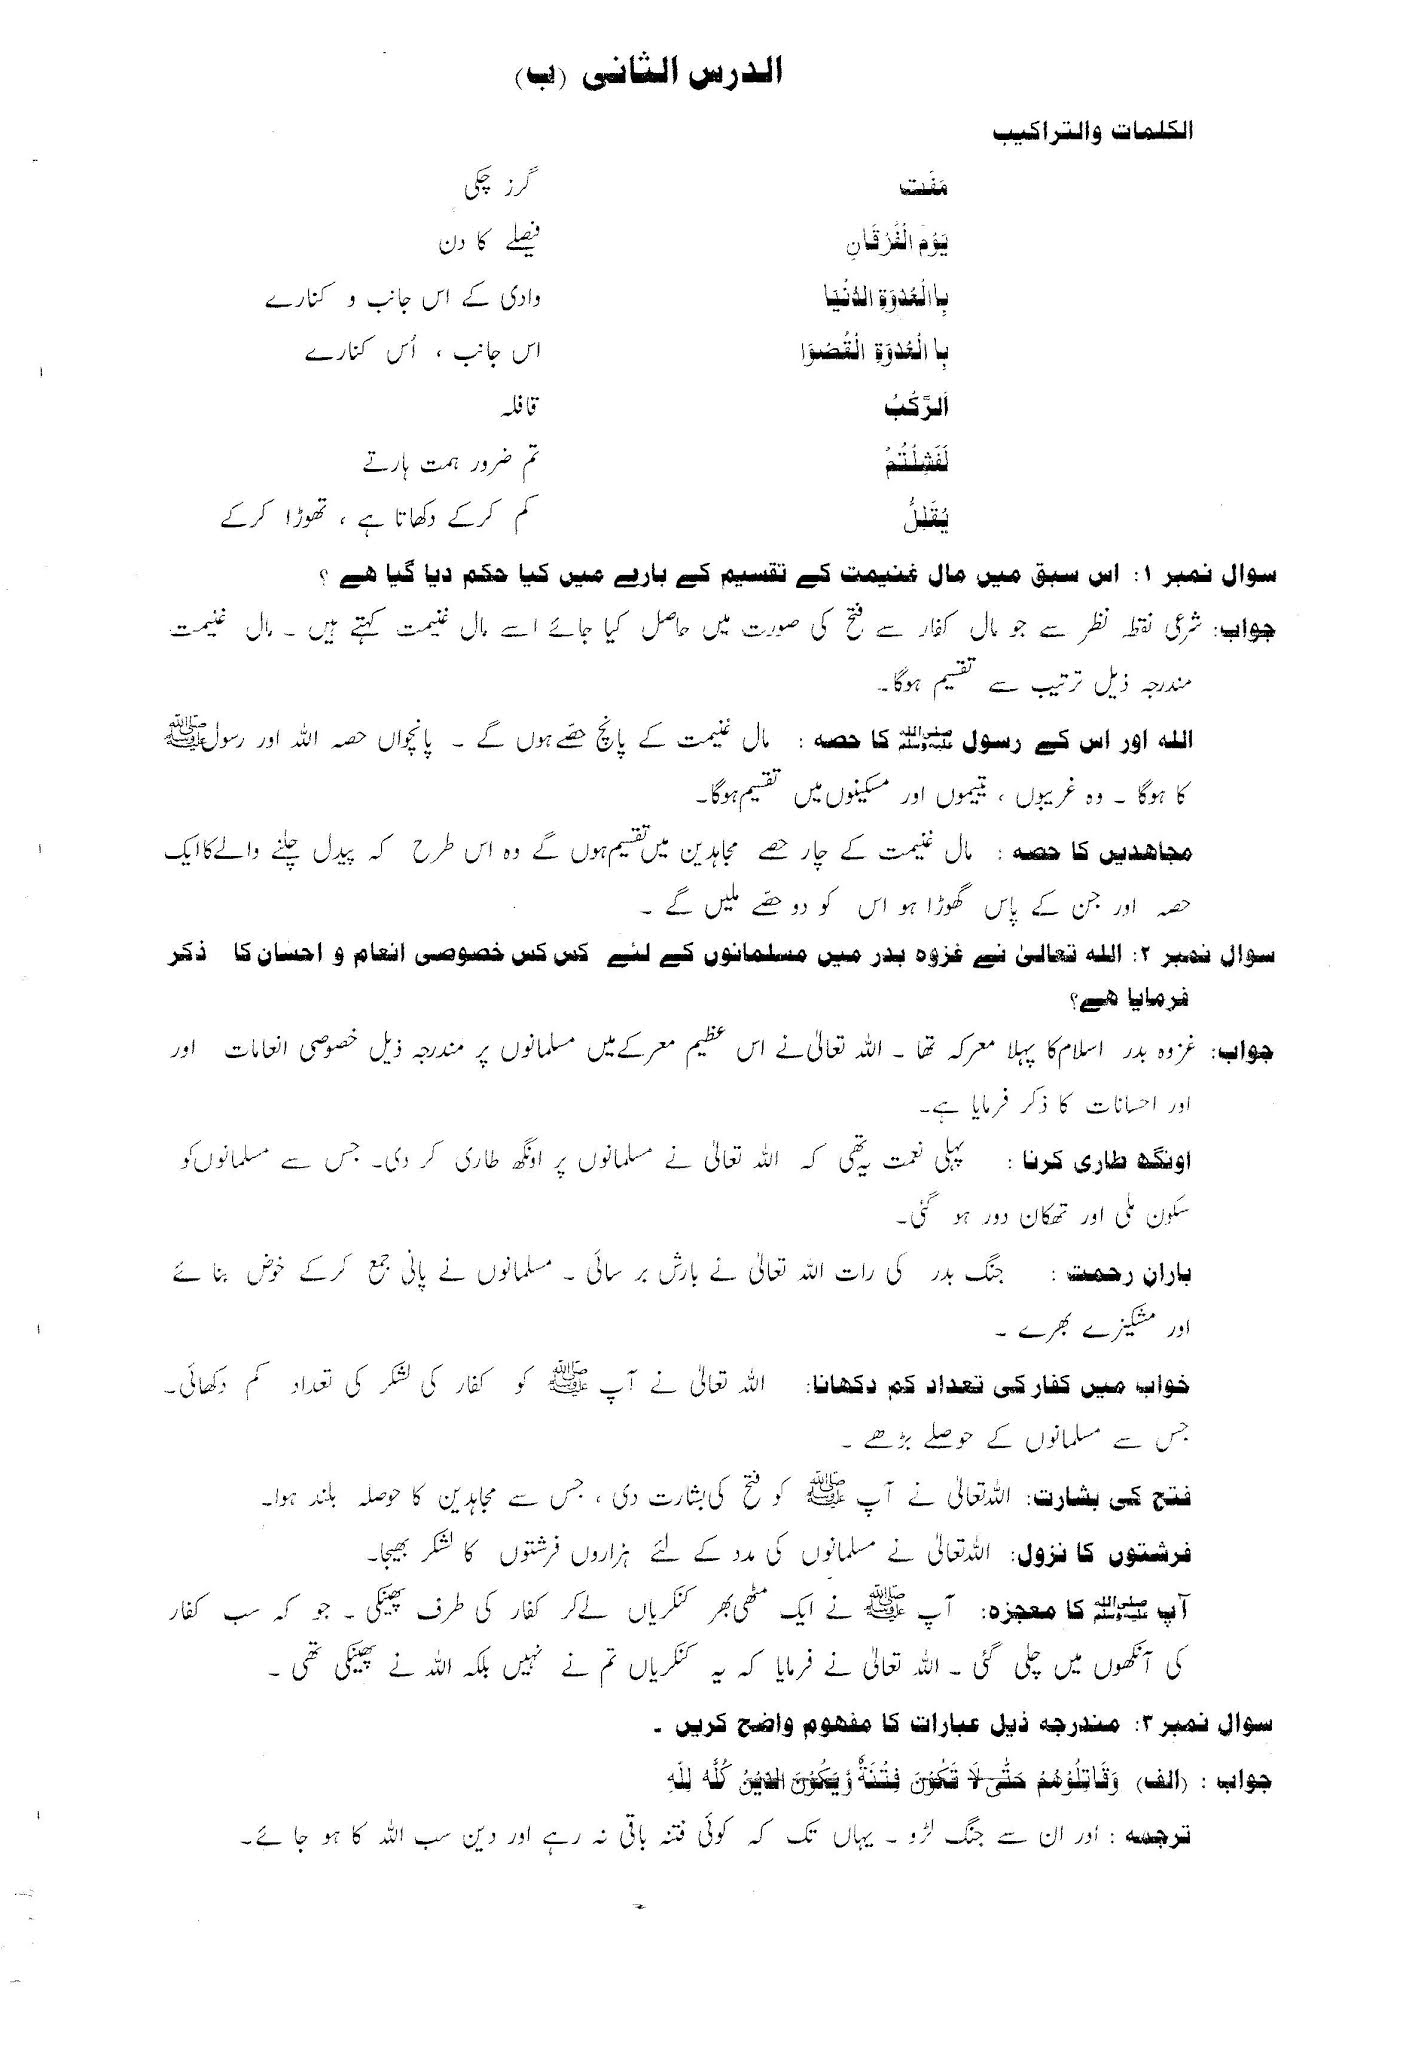 الدرس الثانی (ب)
الکلمات والتراکیب
مَضَت گزر چکی
یَوْمَ الْفُرْقَانِ فیصلے کا دن
بِاالْعُدوَةِ الدُنْیَا وادی کے اس جانب و کنارے
بِا الْعُدوَةِ الْقُصْوَا اس جانب ، اُس کنارے
اَلرَّکْبُ قافلہ
لَفَشِلْتُمْ تم ضرور ہمت ہارتے
یُقَلِلُ کم کرکے دکھاتا ہے ، تھوڑا کرکے
سوال نمبر ۱: اس سبق میں مال غنیمت کے تقسیم کے بارے میں کیا حکم دیا گیا ھے ؟
جواب: شرعی نقطہ نظر سے جو مال کفار سے فتح کی صورت میں حاصل کیا جائے اسے مال غنیمت کہتے ہیں ۔ مال غنیمت
مندرجہ ذیل ترتیب سے تقسیم ہوگا۔
اللہ اور اس کے رسول ﷺ کا حصہ : مال غنیمت کے پانچ حصّے ہوں گے ۔ پانچواں حصہ اللہ اور رسول ﷺ
کا ہوگا ۔ وہ غریبوں ، یتیموں اور مسکینوں میں تقسیم ہوگا۔
مجاھدیں کا حصہ : مال غنیمت کے چار حصے مجاہدین میں تقسیم ہوں گے وہ اس طرح کہ پیدل چلنے والے کا ایک
حصہ اور جن کے پاس گھوڑا ہو اس کو دو حصّے ملیں گے ۔
سوال نمبر ۲: اللہ تعالیٰ نے غزوہ بدر میں مسلمانوں کے لئے کس کس خصوصی انعام و احسان کا ذکر
فرمایا ھے؟
جواب: غزوہ بدر اسلام کا پہلا معرکہ تھا ۔ اللہ تعالیٰ نے اس عظیم معرکے میں مسلمانوں پر مندرجہ ذیل خصوصی انعامات اور
اور احسانات کا ذکر فرمایا ہے۔
اونگھ طاری کرنا : پہلی نعمت یہ تھی کہ اللہ تعالیٰ نے مسلمانوں پر اونگھ طاری کر دی۔ جس سے مسلمانوں کو
سکون ملی اور تھکان دور ہو گئی۔
باران رحمت : جنگ بدر کی رات اللہ تعالیٰ نے بارش بر سائی ۔ مسلمانوں نے پانی جمع کرکے خوض بنا ئے
اور مشکیزے بھرے ۔
خواب میں کفار کی تعداد کم دکھانا: اللہ تعالیٰ نے آپ ﷺ کو کفار کی لشکر کی تعداد کم دکھائی۔
جس سے مسلمانوں کے حوصلے بڑھے ۔
فتح کی بشارت: اللہ تعالیٰ نے آپ ﷺ کو فتح کی بشارت دی ، جس سے مجاہدین کا حوصلہ بلند ہوا۔
فرشتوں کا نزول: اللہ تعالیٰ نے مسلمانوں کی مدد کے لئے ہزاروں فرشتوں کا لشکر بھیجا۔
آپ ﷺ کا معجزہ: آپ ﷺ نے ایک مٹھی بھر کنکریاں لے کر کفار کی طرف پھینکی ۔ جو کہ سب کفار
کی آنکھوں میں چلی گئی ۔ اللہ تعالیٰ نے فرمایا کہ یہ کنکریاں تم نے نہیں بلکہ اللہ نے پھینکی تھی ۔
سوال نمبر ۳: مندرجہ ذیل عبارات کا مفھوم واضح کریں ۔
جواب : (الف) وَقَاتِلُوْھُمْ حَتّٰی لَا تَکُوْنَ فِتْنَةٌ وَّیَکُوْنَ الدِیْنُ کُلُّہ لِلّٰہِ
ترجمہ : اور ان سے جنگ لڑو ۔ یہاں تک کہ کوئی فتنہ باقی نہ رہے اور دین سب اللہ کا ہو جا ئے۔